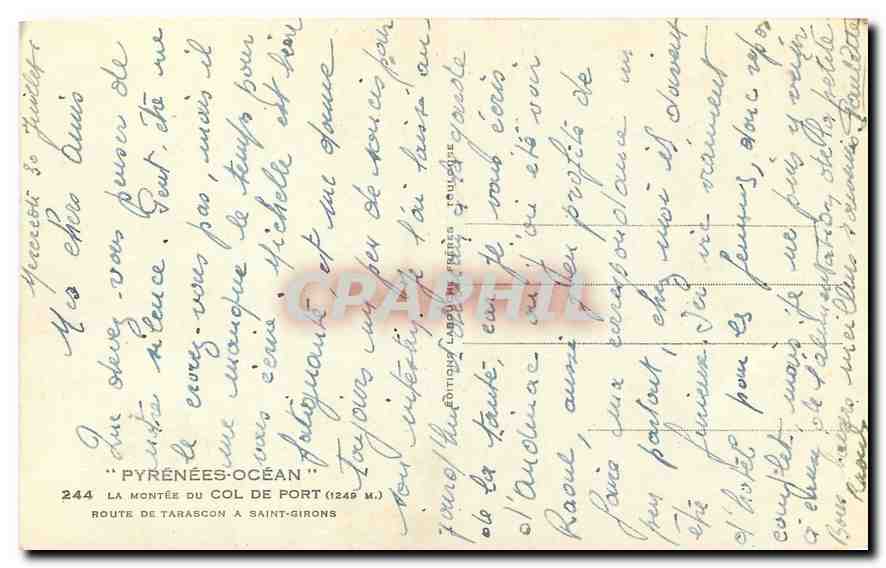 Mercredi 30 Juillet
Mes chers amis
Que devez-vous penser de
notre silence. Peut-être ne
le croyez-vous pas, mais il
me manque le temps pour
vous écrire. Michelle est bien
fatigante et me donne
toujours un peu de soucis pour
son intérieur, je l'ai laissé au
jourd'hui à la garde
de la tante, car je vous écris
d'Audinac où j'ai été voir
Raoul, aussi j'en profite de
faire ma correspondance un
peu partout, chez moi et souvent
été furieux. Ici vie vraiment
d'hôtel pour les femmes, donc repos
complet, mais je ne puis y venir
à cause de l'alimentation de la petite
Bons baisers meilleurs souvenirs Paulette
Raoul
"PYRÉNÉES-OCÉAN"
244 LA MONTÉE DU COL DE PORT (1249 M.)
ROUTE DE TARASCON A SAINT-GIRONS
ÉDITIONS LABOUCHE FRÈRES TOULOUSE
CPAPHIL